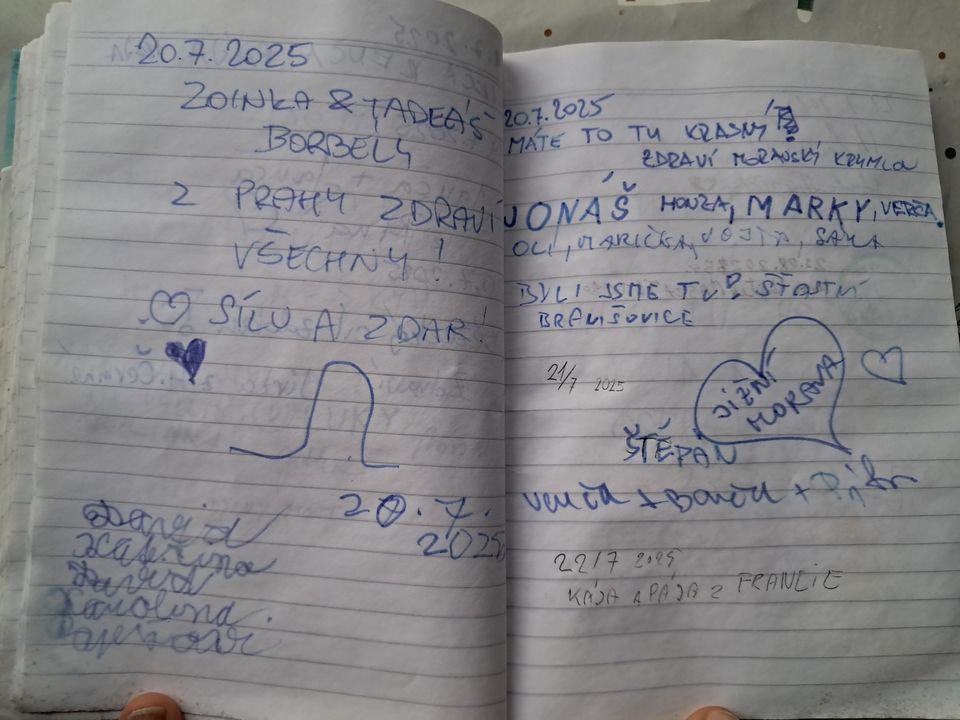 20.7.2025
ZOINKA & TADEÁŠ
BORBELY
Z PRAHY ZDRAVÍ
VŠECHNY!
SÍLU A ZDAR!
20.7.
2025
David
Kateřina
David
Karolína
20.7.2025
MÁTE TO TU KRÁSNÝ
ZDRAVÍ MORAVSKÝ KRUMLOV
JONÁŠ HONZA, MARKY, VERČA,
OLI, MARIČKA, VOJTA, SÁRA
BYLI JSME TU ŠŤASTNÍ
BRANIŠOVICE
21/7 2025
JIŽNÍ
MORAVA
ŠTĚPÁN
22/7 2025
KÁJA A PÁJA Z FRANCIE